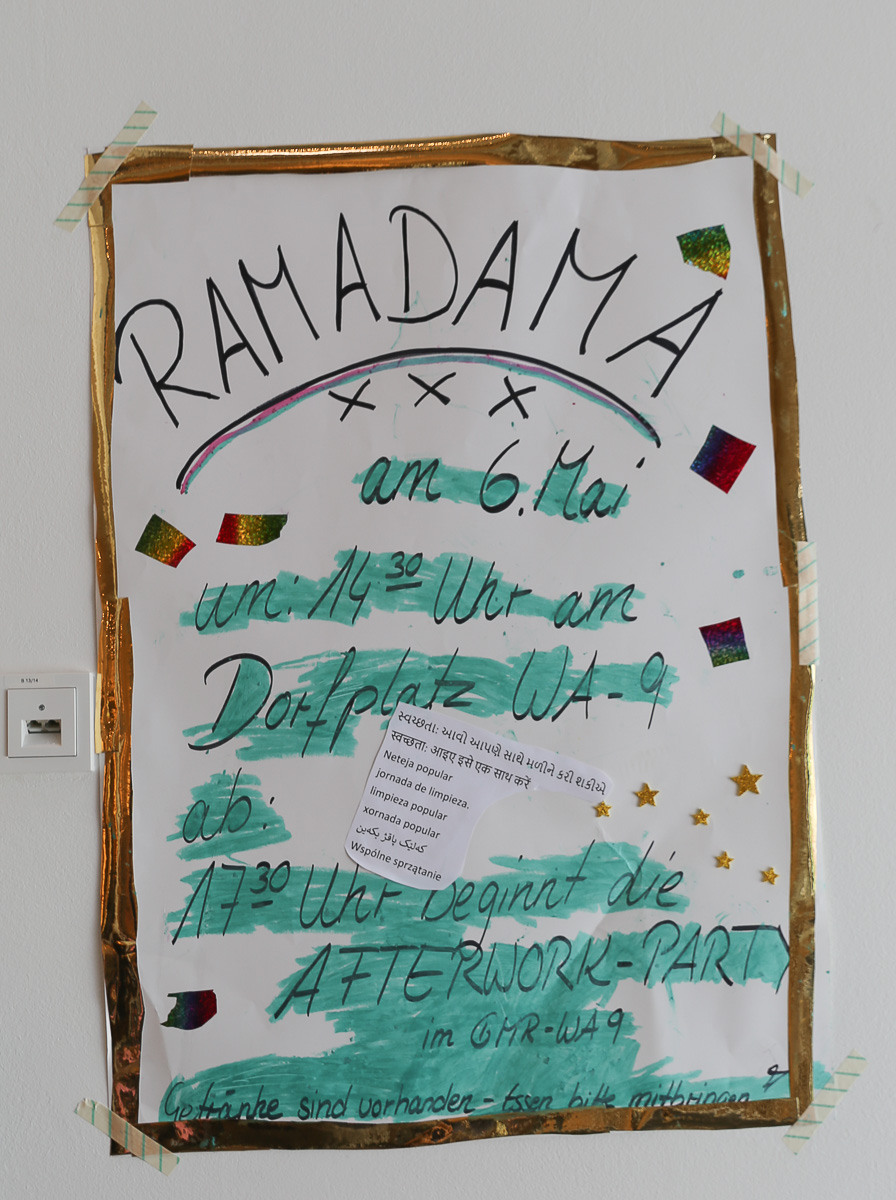 RAMADAMA
x x x
am 6. Mai
um: 14 30 Uhr am
Dorfplatz WA-9
સ્વચ્છતા: આવો આપણે સાથે મળીને કરી શકીએ
स्वच्छता: आइए इसे एक साथ करें
Neteja popular
jornada de limpieza.
limpieza popular
xornada popular
کەلێک پاقژ بکەین
Wspólne sprzątanie
ab:
17 30 Uhr beginnt die
AFTERWORK-PARTY
im GMR-WA9
Getränke sind vorhanden - Essen bitte mitbringen
B 13/14